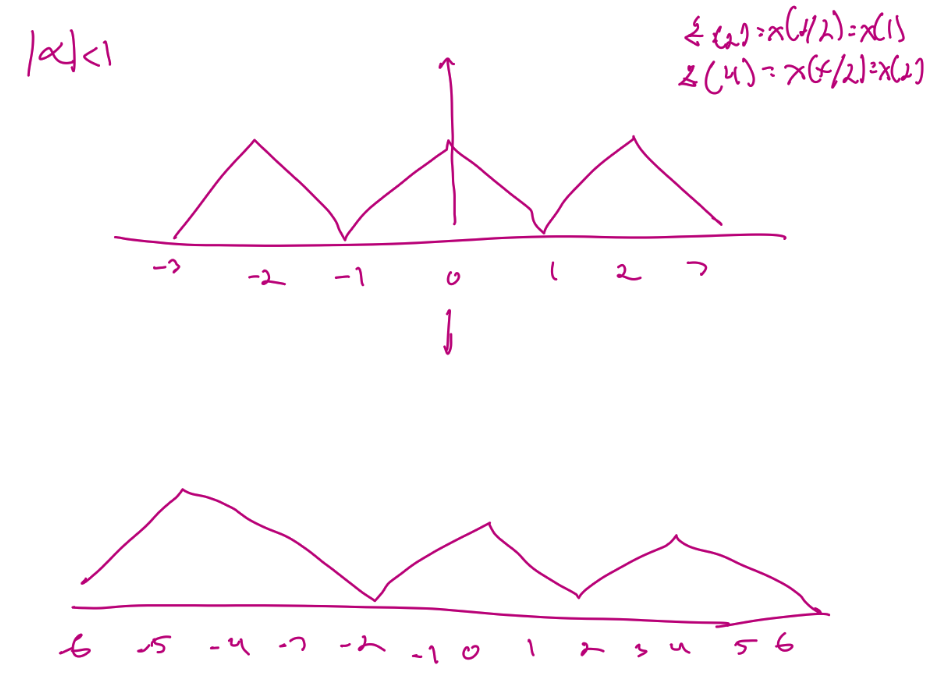 |α|<1
z(2)=x(t/2)=x(1)
z(4)=x(t/2)=x(2)
-3 -2 -1 0 1 2 3
-6 -5 -4 -3 -2 -1 0 1 2 3 4 5 6